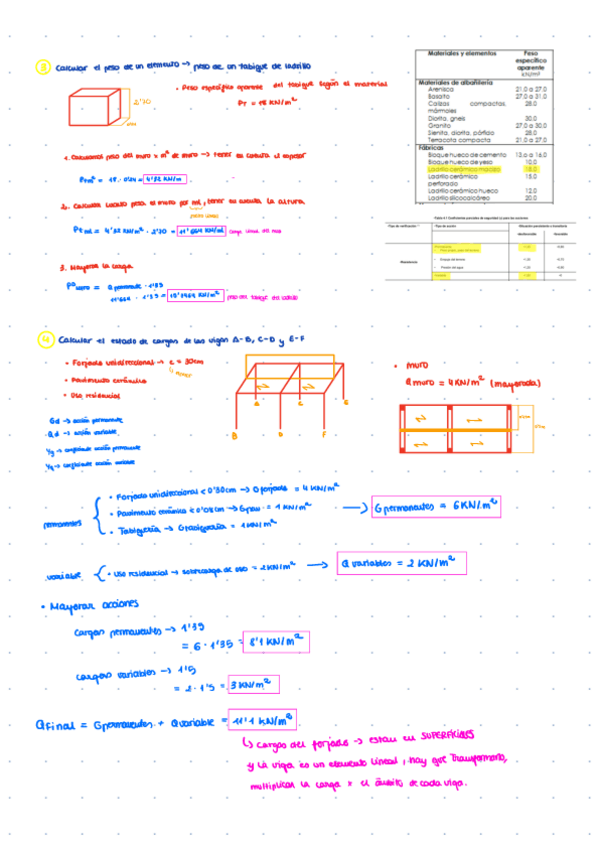 3 Calcular el peso de un elemento → peso de un tabique de ladrillo
• Peso específico aparente del tabique según el material
PT = 18 KN/m³
2'70
1. Calculamos peso del muro x m² de muro → tener en cuenta el espesor
18 · 0'24 = 4'32 KN/m
2. Calcular cuanto pesa el muro por ml, tener en cuenta la altura
Pt ml = 4'32 KN/m² · 2'70 = 11'664 KN/m carga lineal del muro
3. Mayorar la carga
Q permanente · 1'35
11'664 · 1'35 = KN/m peso del tabique de ladrillo
Materiales y elementos Peso específico aparente kN/m³
Materiales de albañilería
Arenisca 21,0 a 27,0
Basalto 27,0 a 31,0
Calizas compactas, mármoles 28,0
Diorita, gneis 30,0
Granito 27,0 a 30,0
Sienita, diorita, pórfido 28,0
Terracota compacta 21,0 a 27,0
Fábricas
Bloque hueco de cemento 13,0 a 16,0
Bloque hueco de yeso 10,0
Ladrillo cerámico macizo 18,0
Ladrillo cerámico perforado 15,0
Ladrillo cerámico hueco 12,0
Ladrillo silicocalcáreo 20,0
Tabla 4.1 Coeficientes parciales de seguridad (γ) para las acciones
Tipo de verificación Tipo de acción Situación persistente o transitoria
desfavorable favorable
Resistencia
Empuje del terreno
Presión del agua
Variable
4 Calcular el estado de cargas de las vigas A-B, C-D y E-F
• Forjado unidireccional → e = 30cm
• Pavimento cerámico
• Uso residencial
Gd → acción permanente
Qd → acción variable
γg → coeficiente acción permanente
γq → coeficiente acción variable
A C E
B D F
• muro
Q muro = 4 KN/m² (mayorada)
permanentes
• Forjado unidireccional < 0'30cm → G forjado = 4 KN/m²
• Pavimento cerámico < 0'08cm → G pav. = 1 KN/m²
• Tabiquería → G tabiquería = 1 KN/m²
→ G permanentes = 6 KN/m²
variable • Uso residencial → sobrecarga de uso = 2 KN/m² → Q variables = 2 KN/m²
• Mayorar acciones
cargas permanentes → 1'35
= 6 · 1'35 = 8'1 KN/m²
cargas variables → 1'5
= 2 · 1'5 = 3 KN/m²
Q Final = G permanentes + Q variable = 11'1 KN/m²
↳ cargas del forjado → estan en SUPERFICIES
y la viga es un elemento lineal, hay que transformarlo,
multiplicar la carga x el ámbito de cada viga.